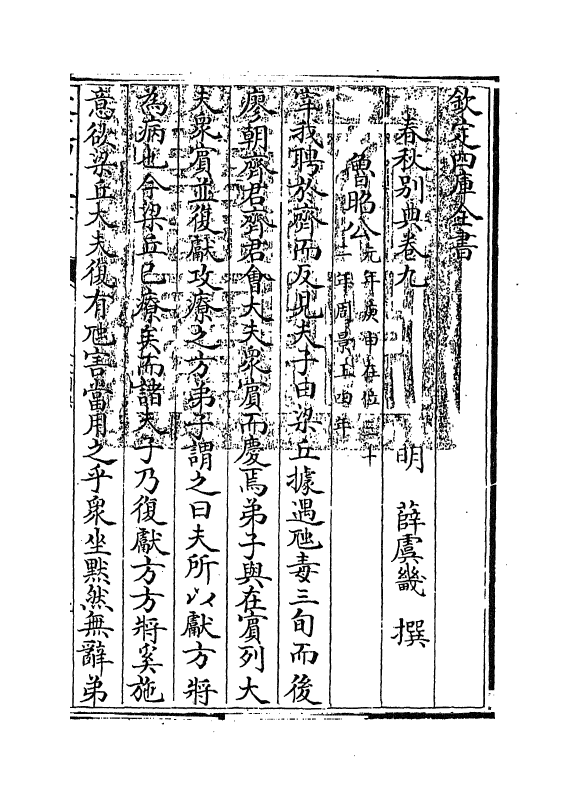 欽定四庫全書
春秋别典卷九
明 薛虞畿 撰
魯昭公元年庚申在位三十二年周景王四年
宰我聘於齊而反見夫子曰梁丘據遇虺毒三旬而後
瘳朝齊君齊君會大夫衆賓而慶焉弟子與在賓列大
夫衆賓並復獻攻療之方弟子謂之曰夫所以獻方將
為病也今梁丘已療矣而諸夫子乃復獻方方將奚施
意欲梁丘大夫復有虺害當用之乎衆坐默然無辭弟